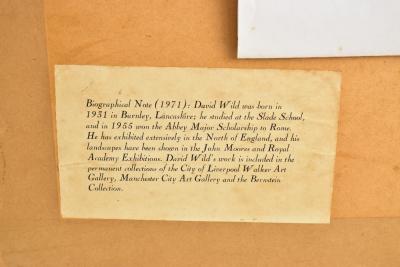 Biographical Note (1971): David Wild was born in
1931 in Burnley, Lancashire; he studied at the Slade School,
and in 1955 won the Abbey Major Scholarship to Rome.
He has exhibited extensively in the North of England, and his
landscapes have been shown in the John Moores and Royal
Academy Exhibitions. David Wild's work is included in the
permanent collections of the City of Liverpool Walker Art
Gallery, Manchester City Art Gallery and the Bernstein
Collection.